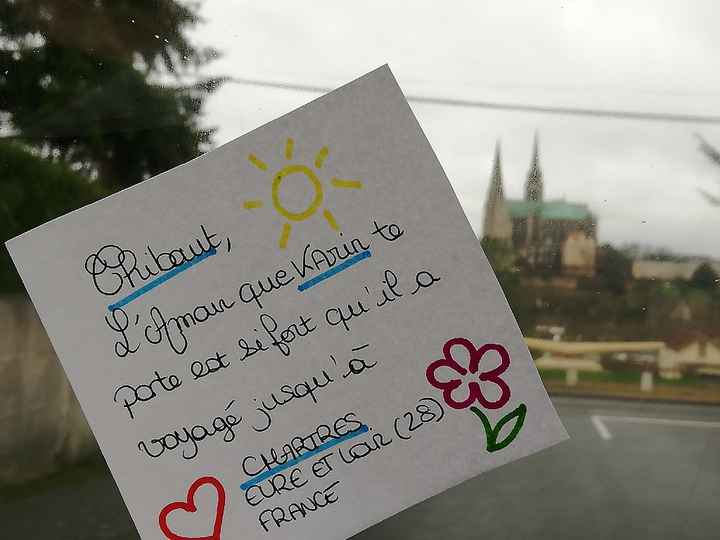 Thibaut,
L'Amour que KArin te
porte est si fort qu'il a
voyagé jusqu'à
CHARTRES.
EURE ET Loir (28)
FRANCE